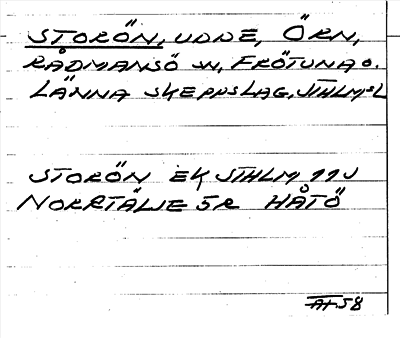 STORÖN, UDDE, ÖRN,
RÅDMANSÖ SN, FRÖTUNA O.
LÄNNA SKEPPSLAG, STHLMS L
STORÖN EK STHLM 11J
NORRTÄLJE 5R HÅTÖ
AH.58